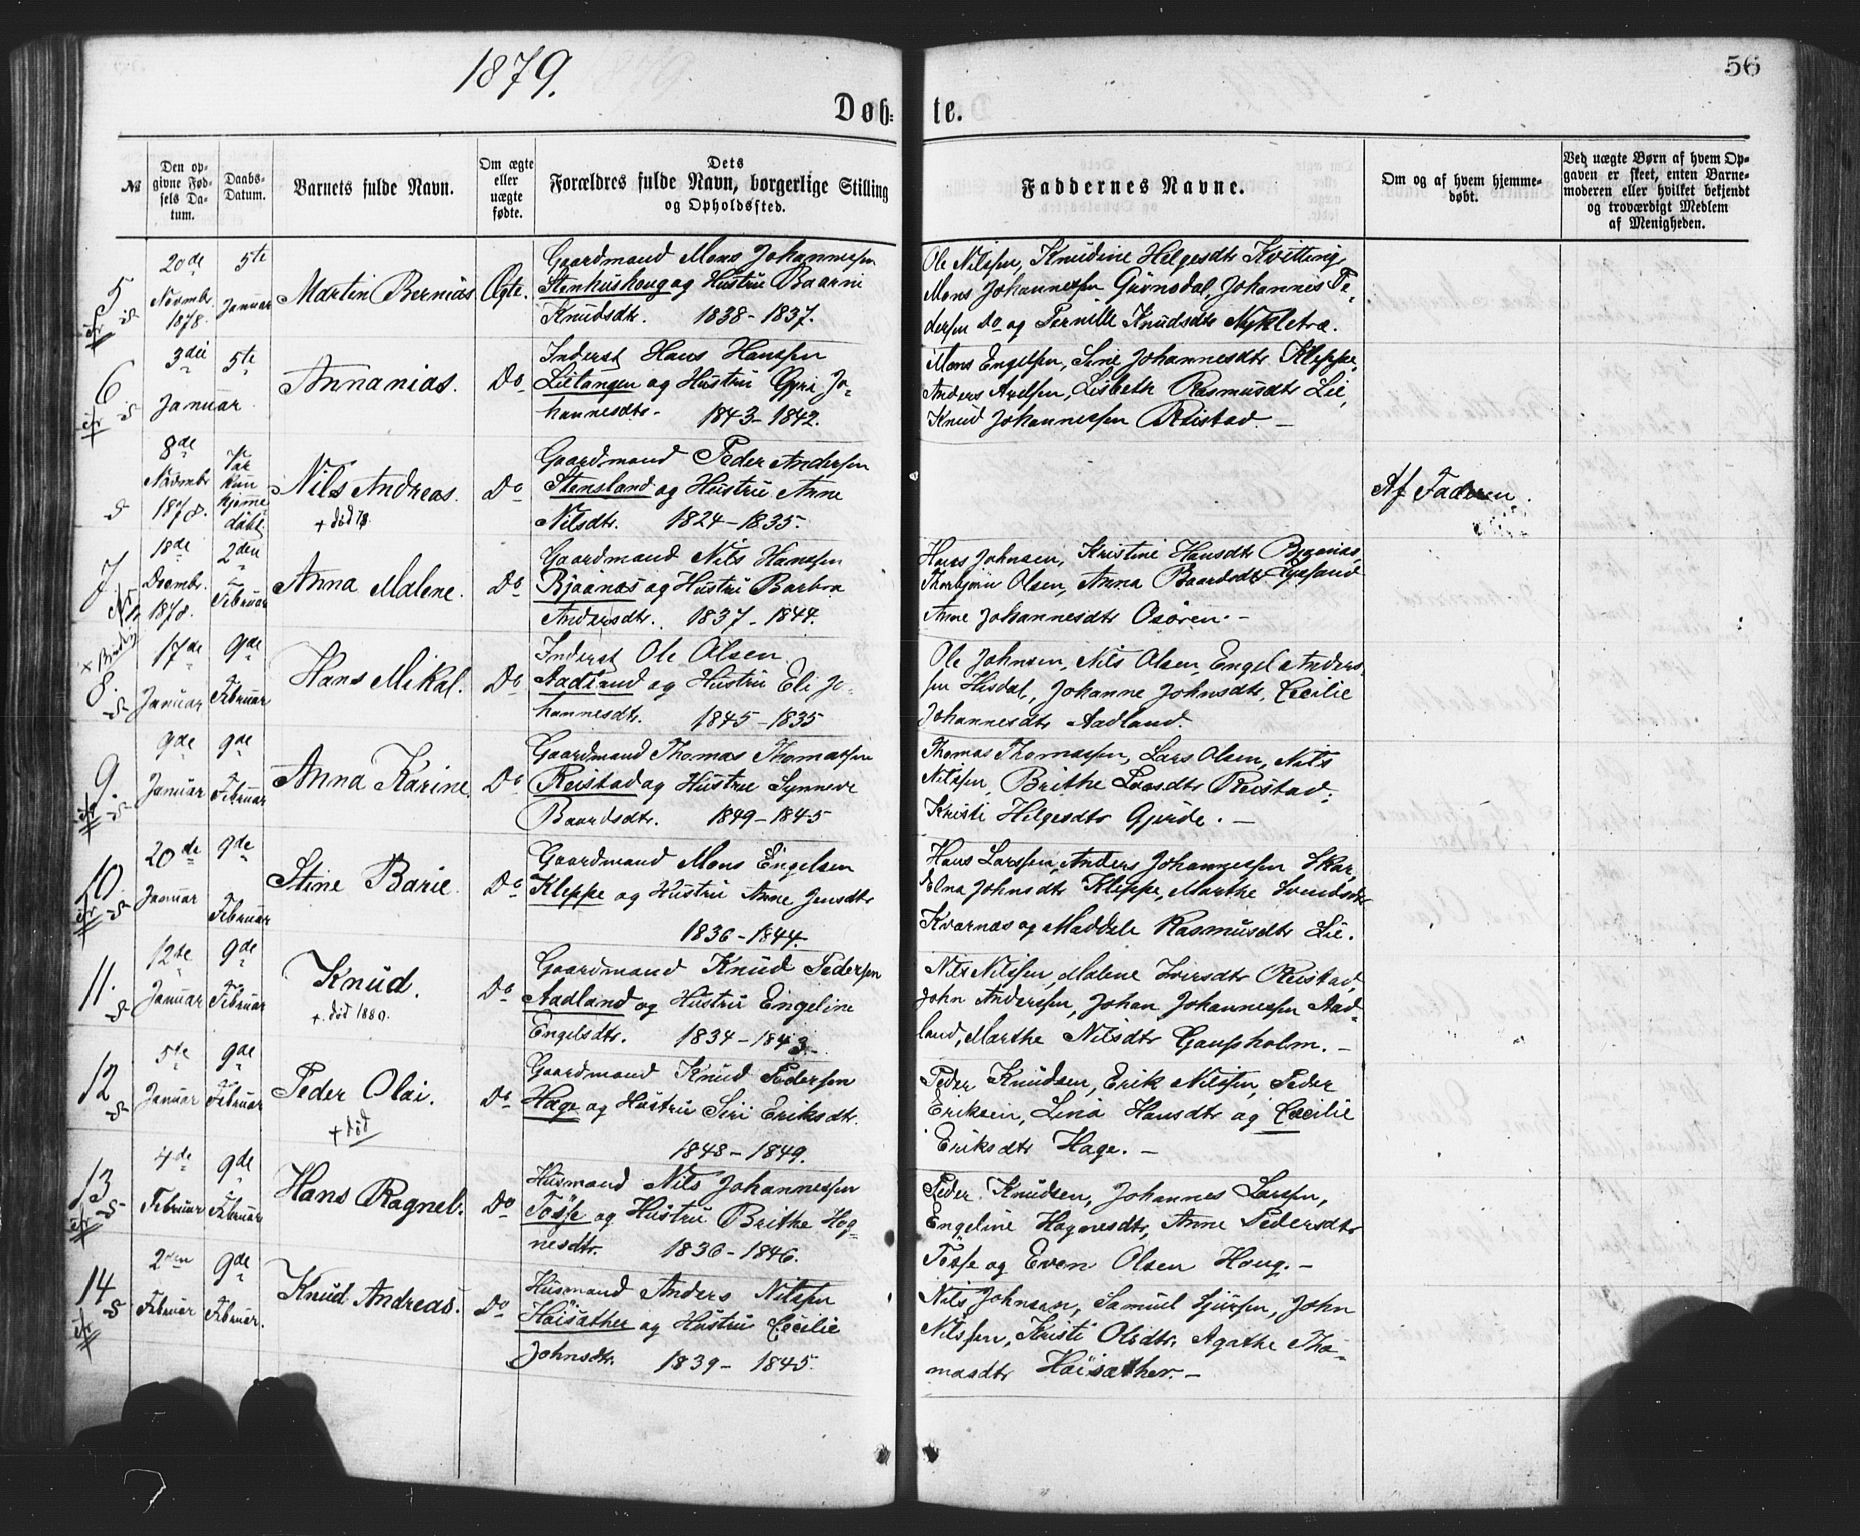 1879.
56
Døb-
te.
№
Den opgivne Fødsels Datum.
Daabs-Datum.
Barnets fulde Navn.
Om ægte eller uægte fødte.
Dets Forældres fulde Navn, borgerlige Stilling og Opholdsfted.
Faddernes Navne.
Om og af hvem hjemmedøbt.
Ved uægte Børn af hvem Opgaven er skeet, enten Barnemoderen eller hvilket bekjendt og troværdigt Medlem af Menigheden.
5
20de Novmbr 1878.
5te Januar
Martin Bernias
Ægte.
Gaardmand Mons Johannessen
Stenhushoug og Hustru Baarni
Knudsdtr. 1838-1837.
Ole Nilssen, Knudine Helgesdtr Kvitting,
Mons Johannessen Gåsnsdal, Johannis Pe-
dersen Do og Pernille Knudsdtr Nykletræ.
6
3die Januar
5te
Annanias.
Do
Inderst Hans Hanssen
Lietangen og Hustru Gyri Jo-
hannesdtr. 1843-1842.
Mons Engelsen, Sine Johannesdtr Kleppe,
Anders Axelsen, Lisbeth Rasmusdtr Lie,
Knud Johannessen Reistad. -
8de Novmbr 1878.
Var kun hjemme døbt
Nils Andreas.
+ død 78
Do
Gaardmand Peder Andersen
Stensland og Hustru Anne
Nilsdtr. 1824-1835.
Af Faderen.
7
18de Decmbr 1878.
2den Februar
Anna Malene.
Do
Gaardmand Nils Hanssen
Bjaanæs og Hustru Barbra
Andersdtr. 1837-1844.
Hans Johnsen, Kristine Hansdtr Bjaanæs,
Thorbjørn Olsen, Anna Baardsdtr Lysand
Anne Johannesdtr Osøren. -
8.
17de Januar
9de Februar
Hans Mikal.
Do
Inderst Ole Olsen
Aadland og Hustru Eli Jo-
hannesdtr. 1845-1835
Ole Johnsen, Nils Olsen, Engel Anders-
sen Hisdal, Johanne Johnsdtr, Cecilie
Johannesdtr Aadland.
9.
9de Januar
9de Februar
Anna Karine.
Do
Gaardmand Thomas Thomassen
Reistad og Hustru Synneve
Baardsdtr. 1849-1845
Thomas Thomassen, Lars Olsen, Nils
Nilssen, Brithe Larsdtr Reistad,
Kristi Helgesdtr Gjerde. -
10
20de Januar
9de Februar
Stine Barie.
Do
Gaardmand Mons Engelsen
Kleppe og Hustru Anne Jensdtr
1836-1844.
Hans Larssen, Anders Johannessen Skar,
Elna Johnsdtr Kleppe, Marthe Svendsdtr
Kvarnæs og Maddele Rasmusdtr Lie.
11.
12te Januar
9de Februar
Knud.
+ død 1880.
Do
Gaardmand Knud Pedersen
Aadland og Hustru Engeline
Engelsdtr. 1834-1843.
Nils Nilssen, Malene Iversdtr Reistad,
John Anderssen, Johan Johannessen Aad-
land, Marthe Nilsdtr Gaupholm. -
12
5te Januar
9de Februar
Peder Olai.
+ død
Do
Gaardmand Knud Pedersen
Hage og Hustru Siri Eriksdtr.
1848-1849.
Peder Knudsen, Erik Nilssen, Peder
Eriksen, Lina Hansdtr og Cecilie
Eriksdtr Hage. -
13
4de Februar
9de Februar
Hans Ragnel.
Do
Husmand Nils Johannessen
Tøsse og Hustru Brithe Hog-
nesdtr. 1836-1846.
Peder Knudsen, Johannes Larsen,
Engeline Hognesdtr, Anne Pedersdtr
Tøsse og Even Olsen Houg. -
14
2den Februar
9de Februar.
Knud Andreas.
Do
Husmand Anders Nilssen
Höisæther og Hustru Cecilie
Johnsdtr. 1839-1845.
Nils Johnsen, Samuel Sjursen, John
Nilssen, Kristi Olsdtr, Agathe Tho-
masdtr Höisæther. -